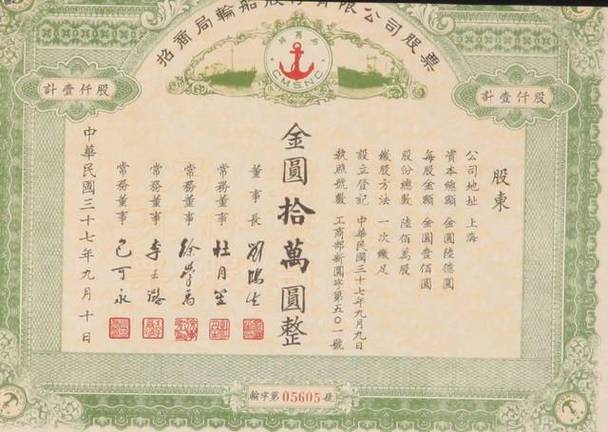 招商局輪船股份有限公司股票
招商局
CMSNC
計壹仟股
計壹仟股
股東
公司地址 上海
資本總額 金圓陸億圓
每股金額 金圓壹佰圓
股份總數 陸佰萬股
繳股方法 一次繳足
設立登記 中華民國三十七年九月九日
執照號數 工商部新圓字第五〇一號
金圓拾萬圓整
董事長 劉鴻生
常務董事 杜月笙
常務董事 徐學禹
常務董事 李
常務董事 可永
中華民國三十七年九月十日
輪字第05605號